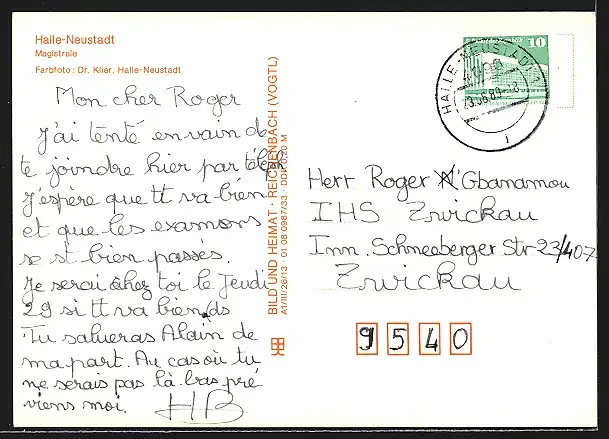 Halle-Neustadt
Magistrale
Farbfoto: Dr. Klier, Halle-Neustadt
Mon cher Roger
J'ai tenté en vain de
te joindre hier par téléph
J'espère que tt va bien
et que les examons
se st bien passés.
Je serai chez toi le Jeudi
29 si tt va bien.
Tu salueras Alain de
ma part. Au cas où tu
ne serais pas là-bas pré
viens moi. HB
BILD UND HEIMAT · REICHENBACH (VOGTL)
A1/III/26/13 · 01 08 0987/33 · DDR 0,20 M
10
HALLE-NEUSTADT 1
Herr Roger Gbanamou
IHS Zwickau
Inn. Schneeberger Str-23/407
Zwickau
9540